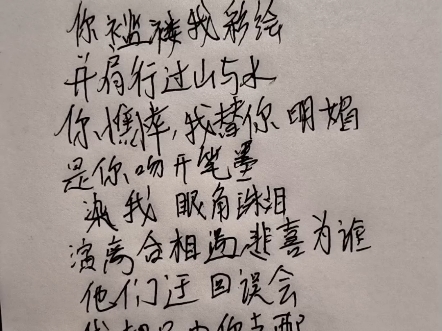 你褴褛我彩绘
并肩行过山与水
你憔悴,我替你明媚
是你吻开笔墨
染我眼角珠泪
演离合相遇悲喜为谁
他们迂回误会
我却只由你支配